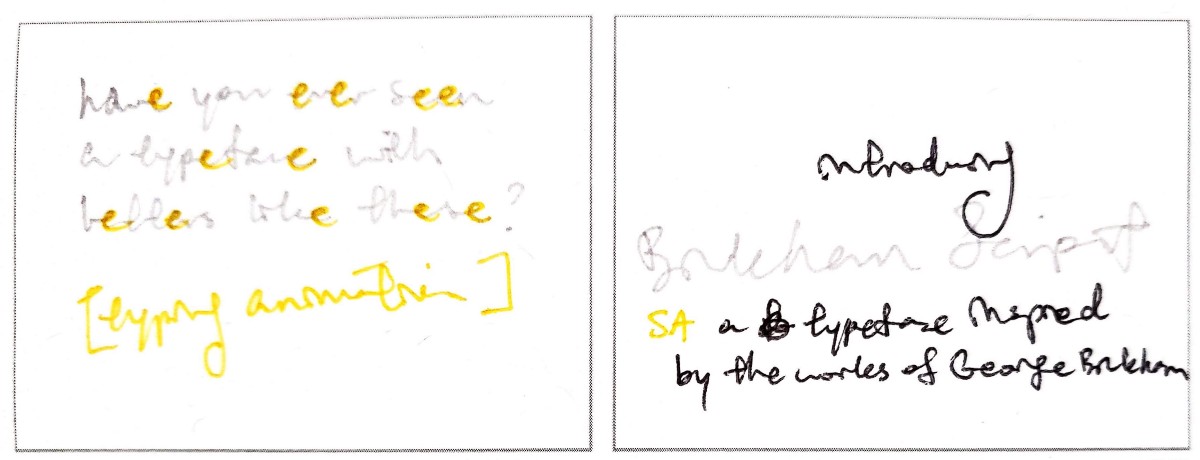 have you ever seen
a typeface with
letters like these?
[typing animation]
introducing
Bickham Script
SA a typeface inspired
by the works of George Bickham